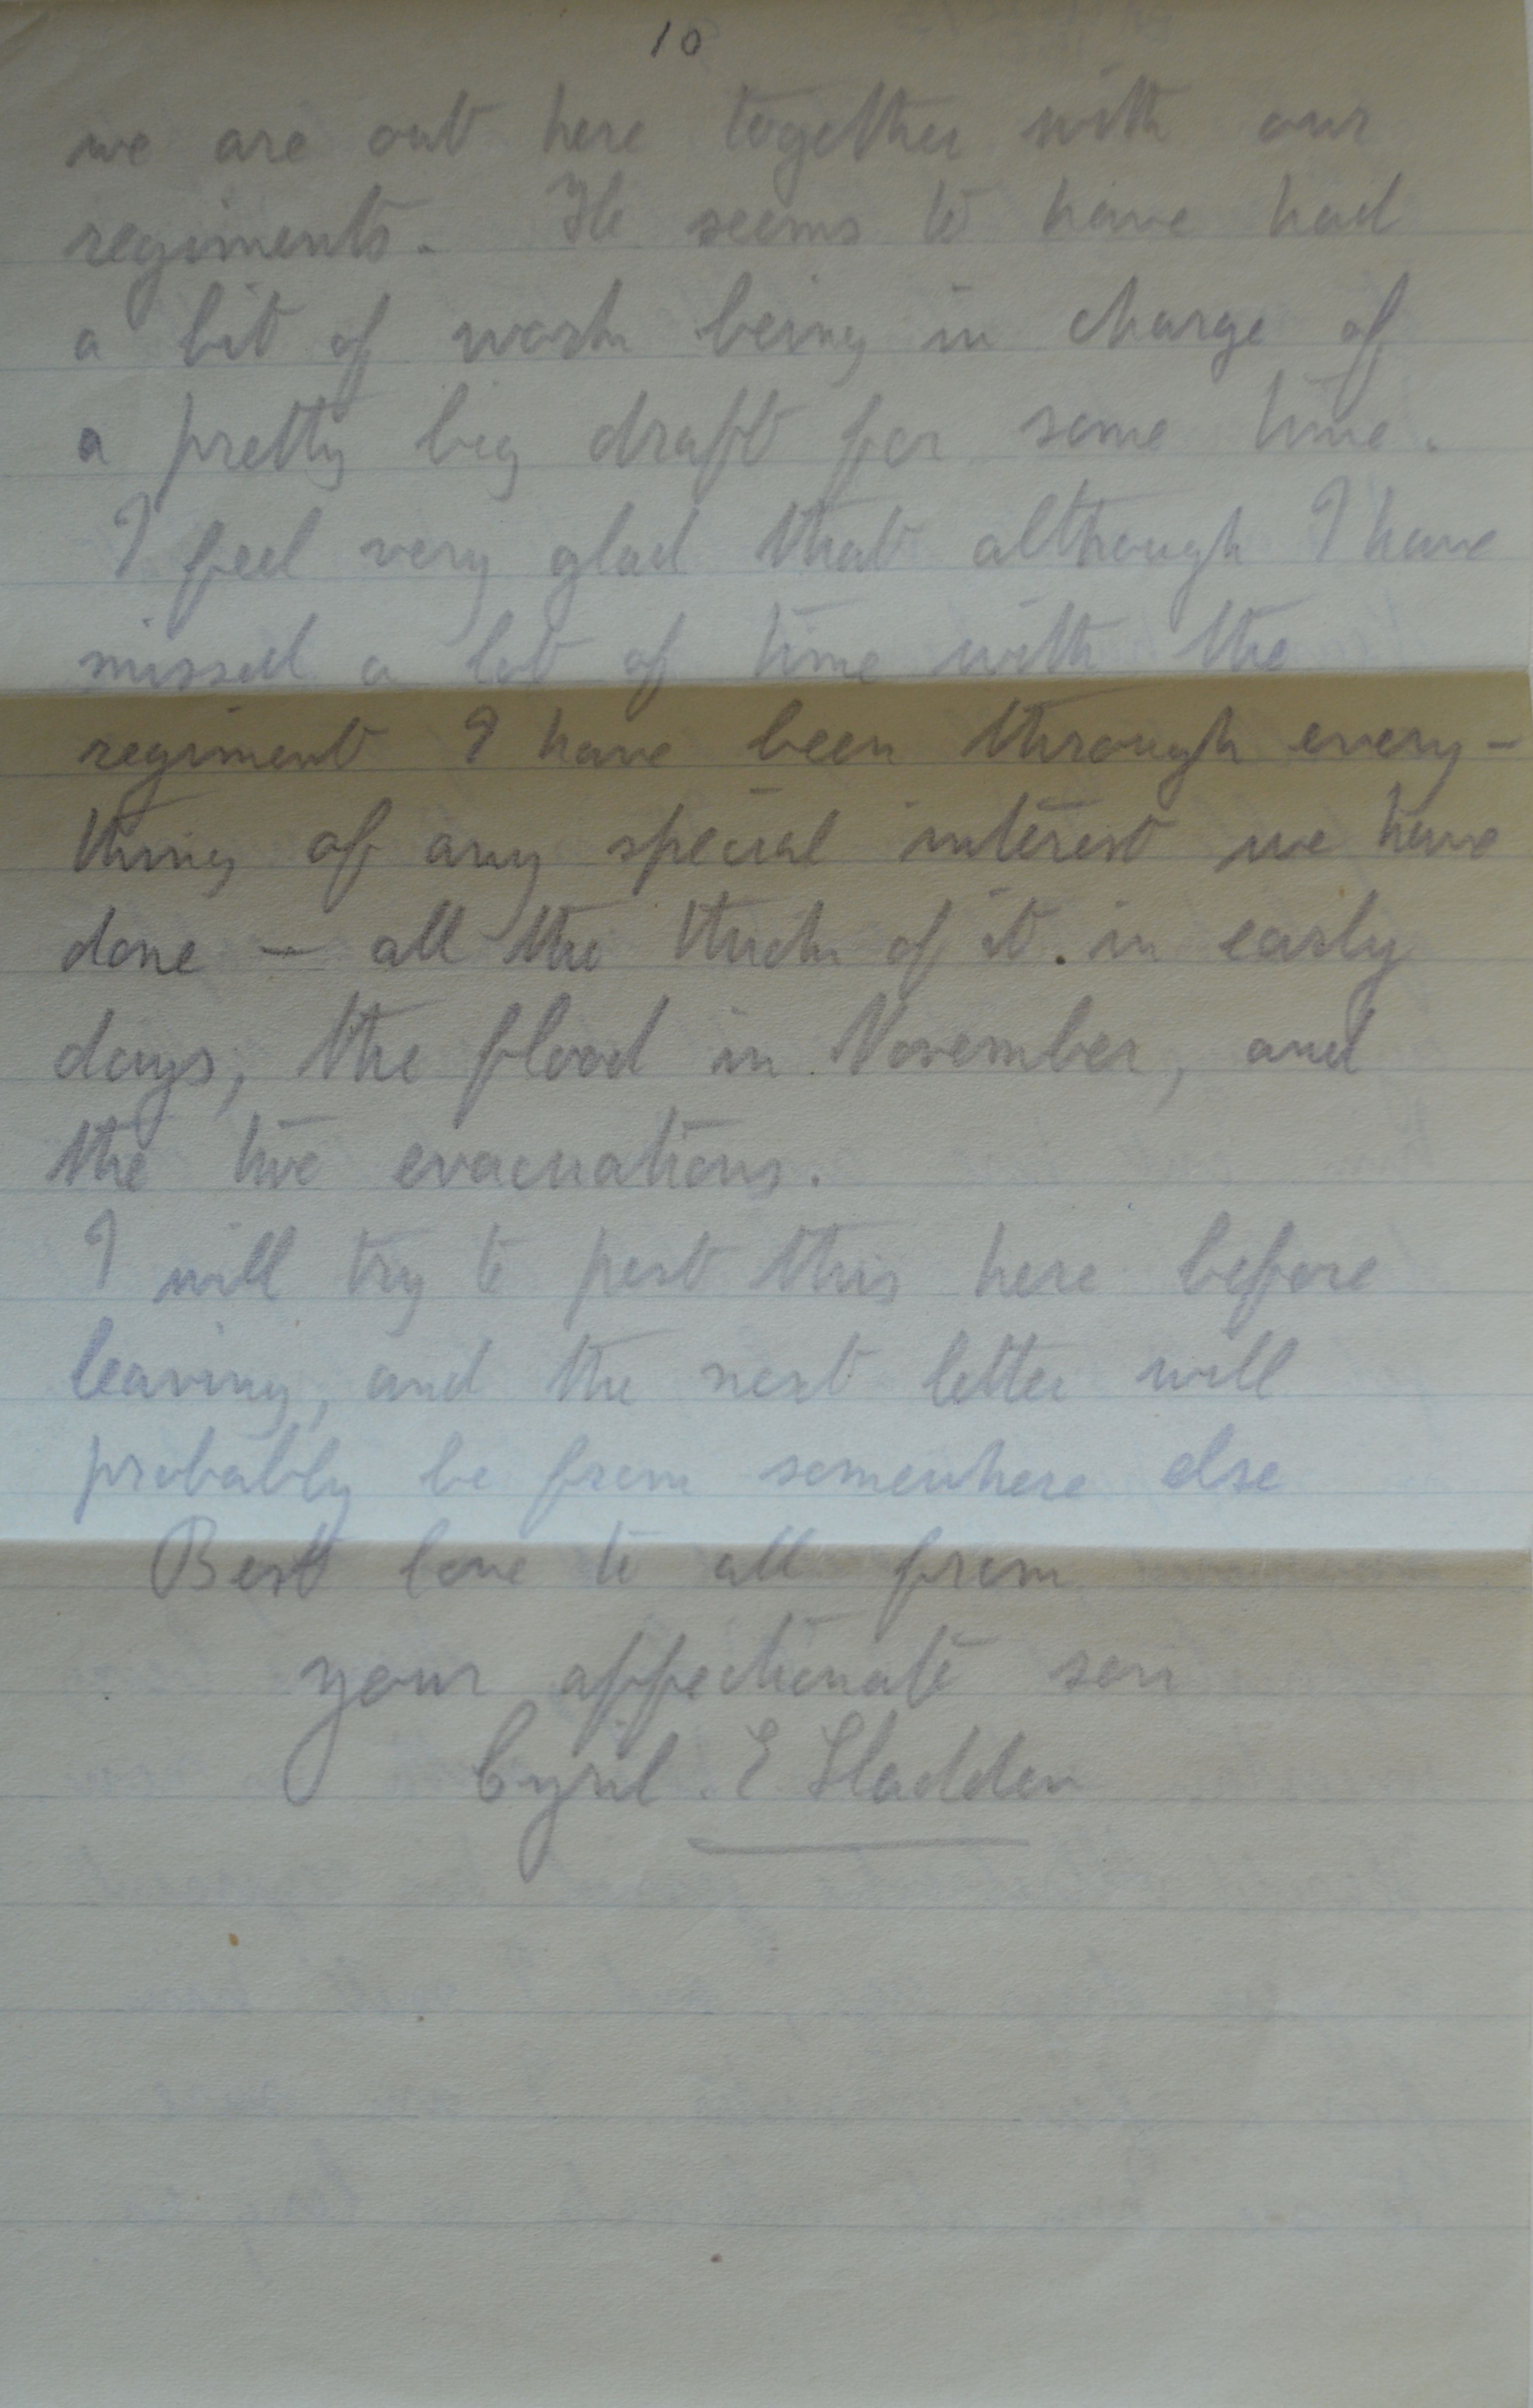 10
we are out here together with our
regiments. He seems to have had
a bit of work being in charge of
a pretty big draft for some time.
I feel very glad that although I have
missed a lot of time with the
regiment I have been through every-
thing of any special interest we have
done — all the thick of it in early
days, the flood in November, and
the two evacuations.
I will try to post this here before
leaving, and the next letter will
probably be from somewhere else
Best love to all from
your affectionate son
Cyril. E Sladden